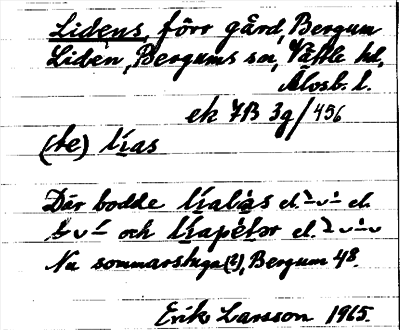 Lidens, förr gård, Bergum
Liden, Bergums sn, Vättle hd,
Älvsb. l.
ek 7B 3g/456
(te) lías
Där bodde líalàs el. el.
och líapétər el.
Nu sommarstuga(?), Bergum 48.
Erik Larsson 1965.